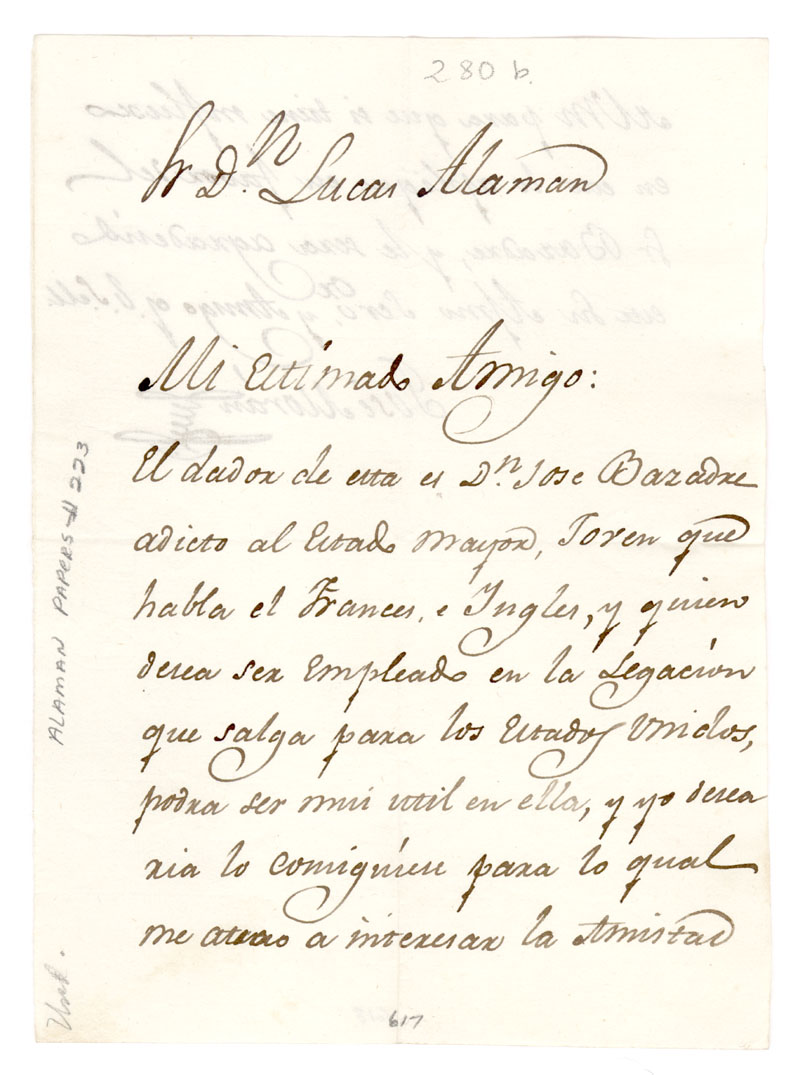 280 b.
Sr D.n Lucas Alaman
Mi Estimado Amigo:
El dador de esta es D.n Jose Bazadre
adicto al Estado Mayor, Joven que
habla el Frances, e Ingles, y quien
desea ser Empleado en la Legacion
que salga para los Estados Unidos,
podra ser mui util en ella, y yo desea
ria lo consiguiese para lo qual
me atrevo a interesar la Amistad
ALAMAN PAPERS # 223
617